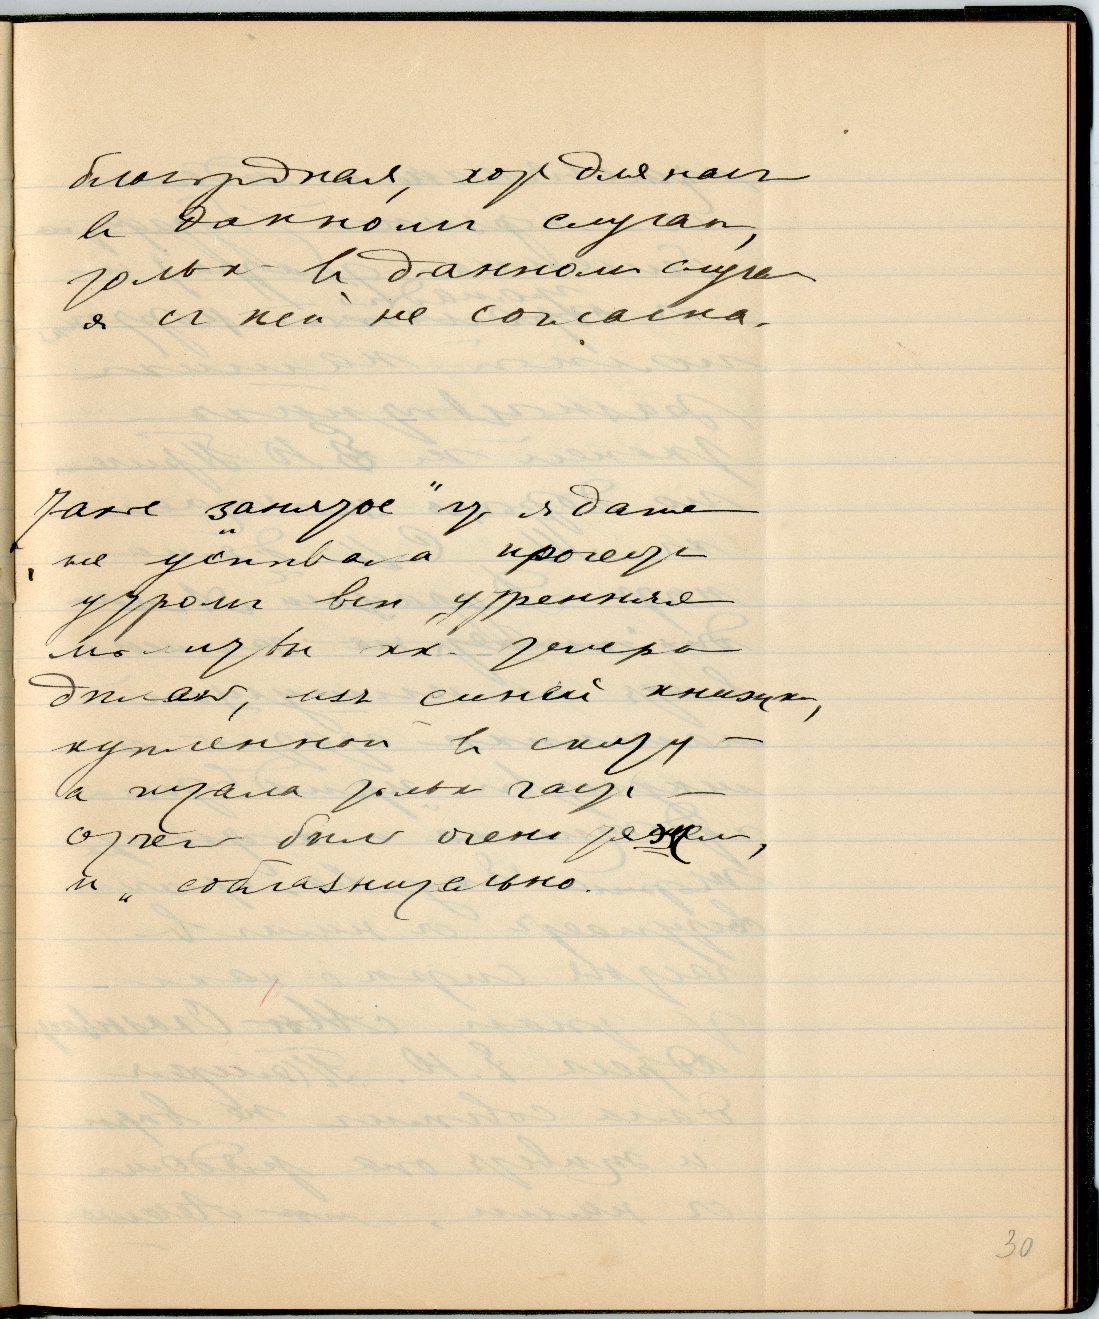 благородная, хотя для насъ
въ данномъ случаѣ,
только въ данномъ случаѣ
я съ ней не согласна.
Такое занятое" что я даже
не успѣвала прочесть
утромъ всѣ утренняя
молитвы какъ теперь
дѣлаю, изъ синей книжки,
купленной въ скиту —
а читала только часть —
отчего былъ очень
и „соблазнительно.
30